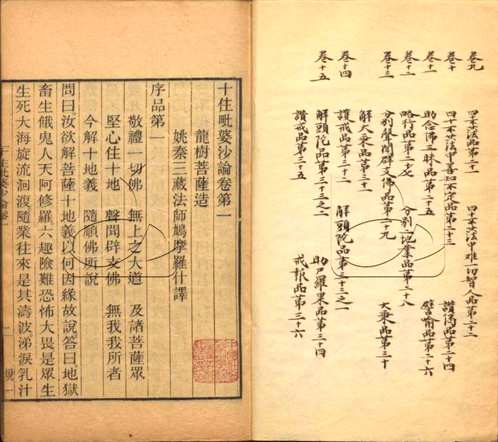 卷九　四十不共法品第二十一　四十不共法中難一切智人品第二十二
卷十　四十不共法中善知不定品第二十三　讚偈品第二十四
卷十一　助念佛三昧品第二十五　譬喻品第二十六
卷十二　略行品第二十七　分別二地業品第二十八
卷十三　分別聲聞辟支佛品第二十九　大乘品第三十
解大乘品第三十一
卷十四　護戒品第三十二　解頭陀品第三十三之一
卷十五　解頭陀品第三十三之二　助尸羅果品第三十四
讚戒品第三十五　戒報品第三十六
十住毗婆沙論卷第一
龍樹菩薩造
姚秦三藏法師鳩摩羅什譯
序品第一
敬禮一切佛　無上之大道　及諸菩薩眾
堅心住十地　聲聞辟支佛　無我我所者
今解十地義　隨順佛所說
問曰汝欲解菩薩十地義以何因緣故說答曰地獄
畜生餓鬼人天阿修羅六趣險難恐怖大畏是眾生
生死大海旋流洄澓隨業往來是其濤波涕淚乳汁